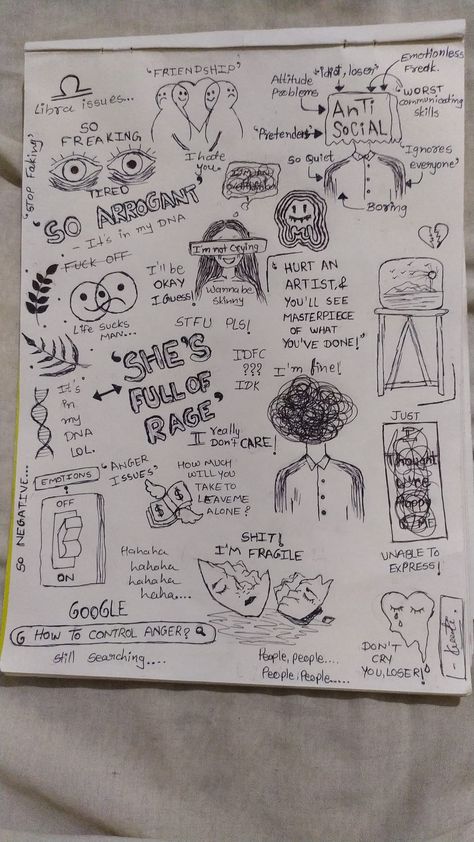 Libra issues...
"FRIENDSHIP"
Attitude
Problems
"idiot, loser"
Emotionless
Freak.
"WORST
communicating
skills
ANTi
SOCIAL
"Pretender"
"Ignores
everyone"
So Quiet
Boring
SO
FREAKING
TIRED
"STOP Faking"
I hate
you
'SO ARROGANT
- It's in my DNA
I'm not Crying
Wannabe
skinny
FUCK OFF
Life sucks
MAN...
I'll be
OKAY
I Guess!
STFU PLS!
"HURT AN
ARTIST, &
YOU'LL SEE
MASTERPIECE
OF WHAT
YOU'VE DONE!"
'SHE'S
FULL OF
RAGE'
It's
in
my
DNA
LOL.
IDFC
???
IDK
I'm fine!
I really
Don't CARE!
JUST
I
Thought
Happy
UNABLE TO
EXPRESS!
SO NEGATIVE...
EMOTIONS
OFF
ON
"ANGER
ISSUES"
HOW MUCH
WILL YOU
TAKE TO
LEAVE ME
ALONE?
$
$
Hahaha
hahaha
hahaha
haha....
SHIT!
I'M FRAGILE
GOOGLE
G HOW TO CONTROL ANGER?
Still searching....
People, people....
People, People.....
DON'T
CRY
YOU, LOSER!